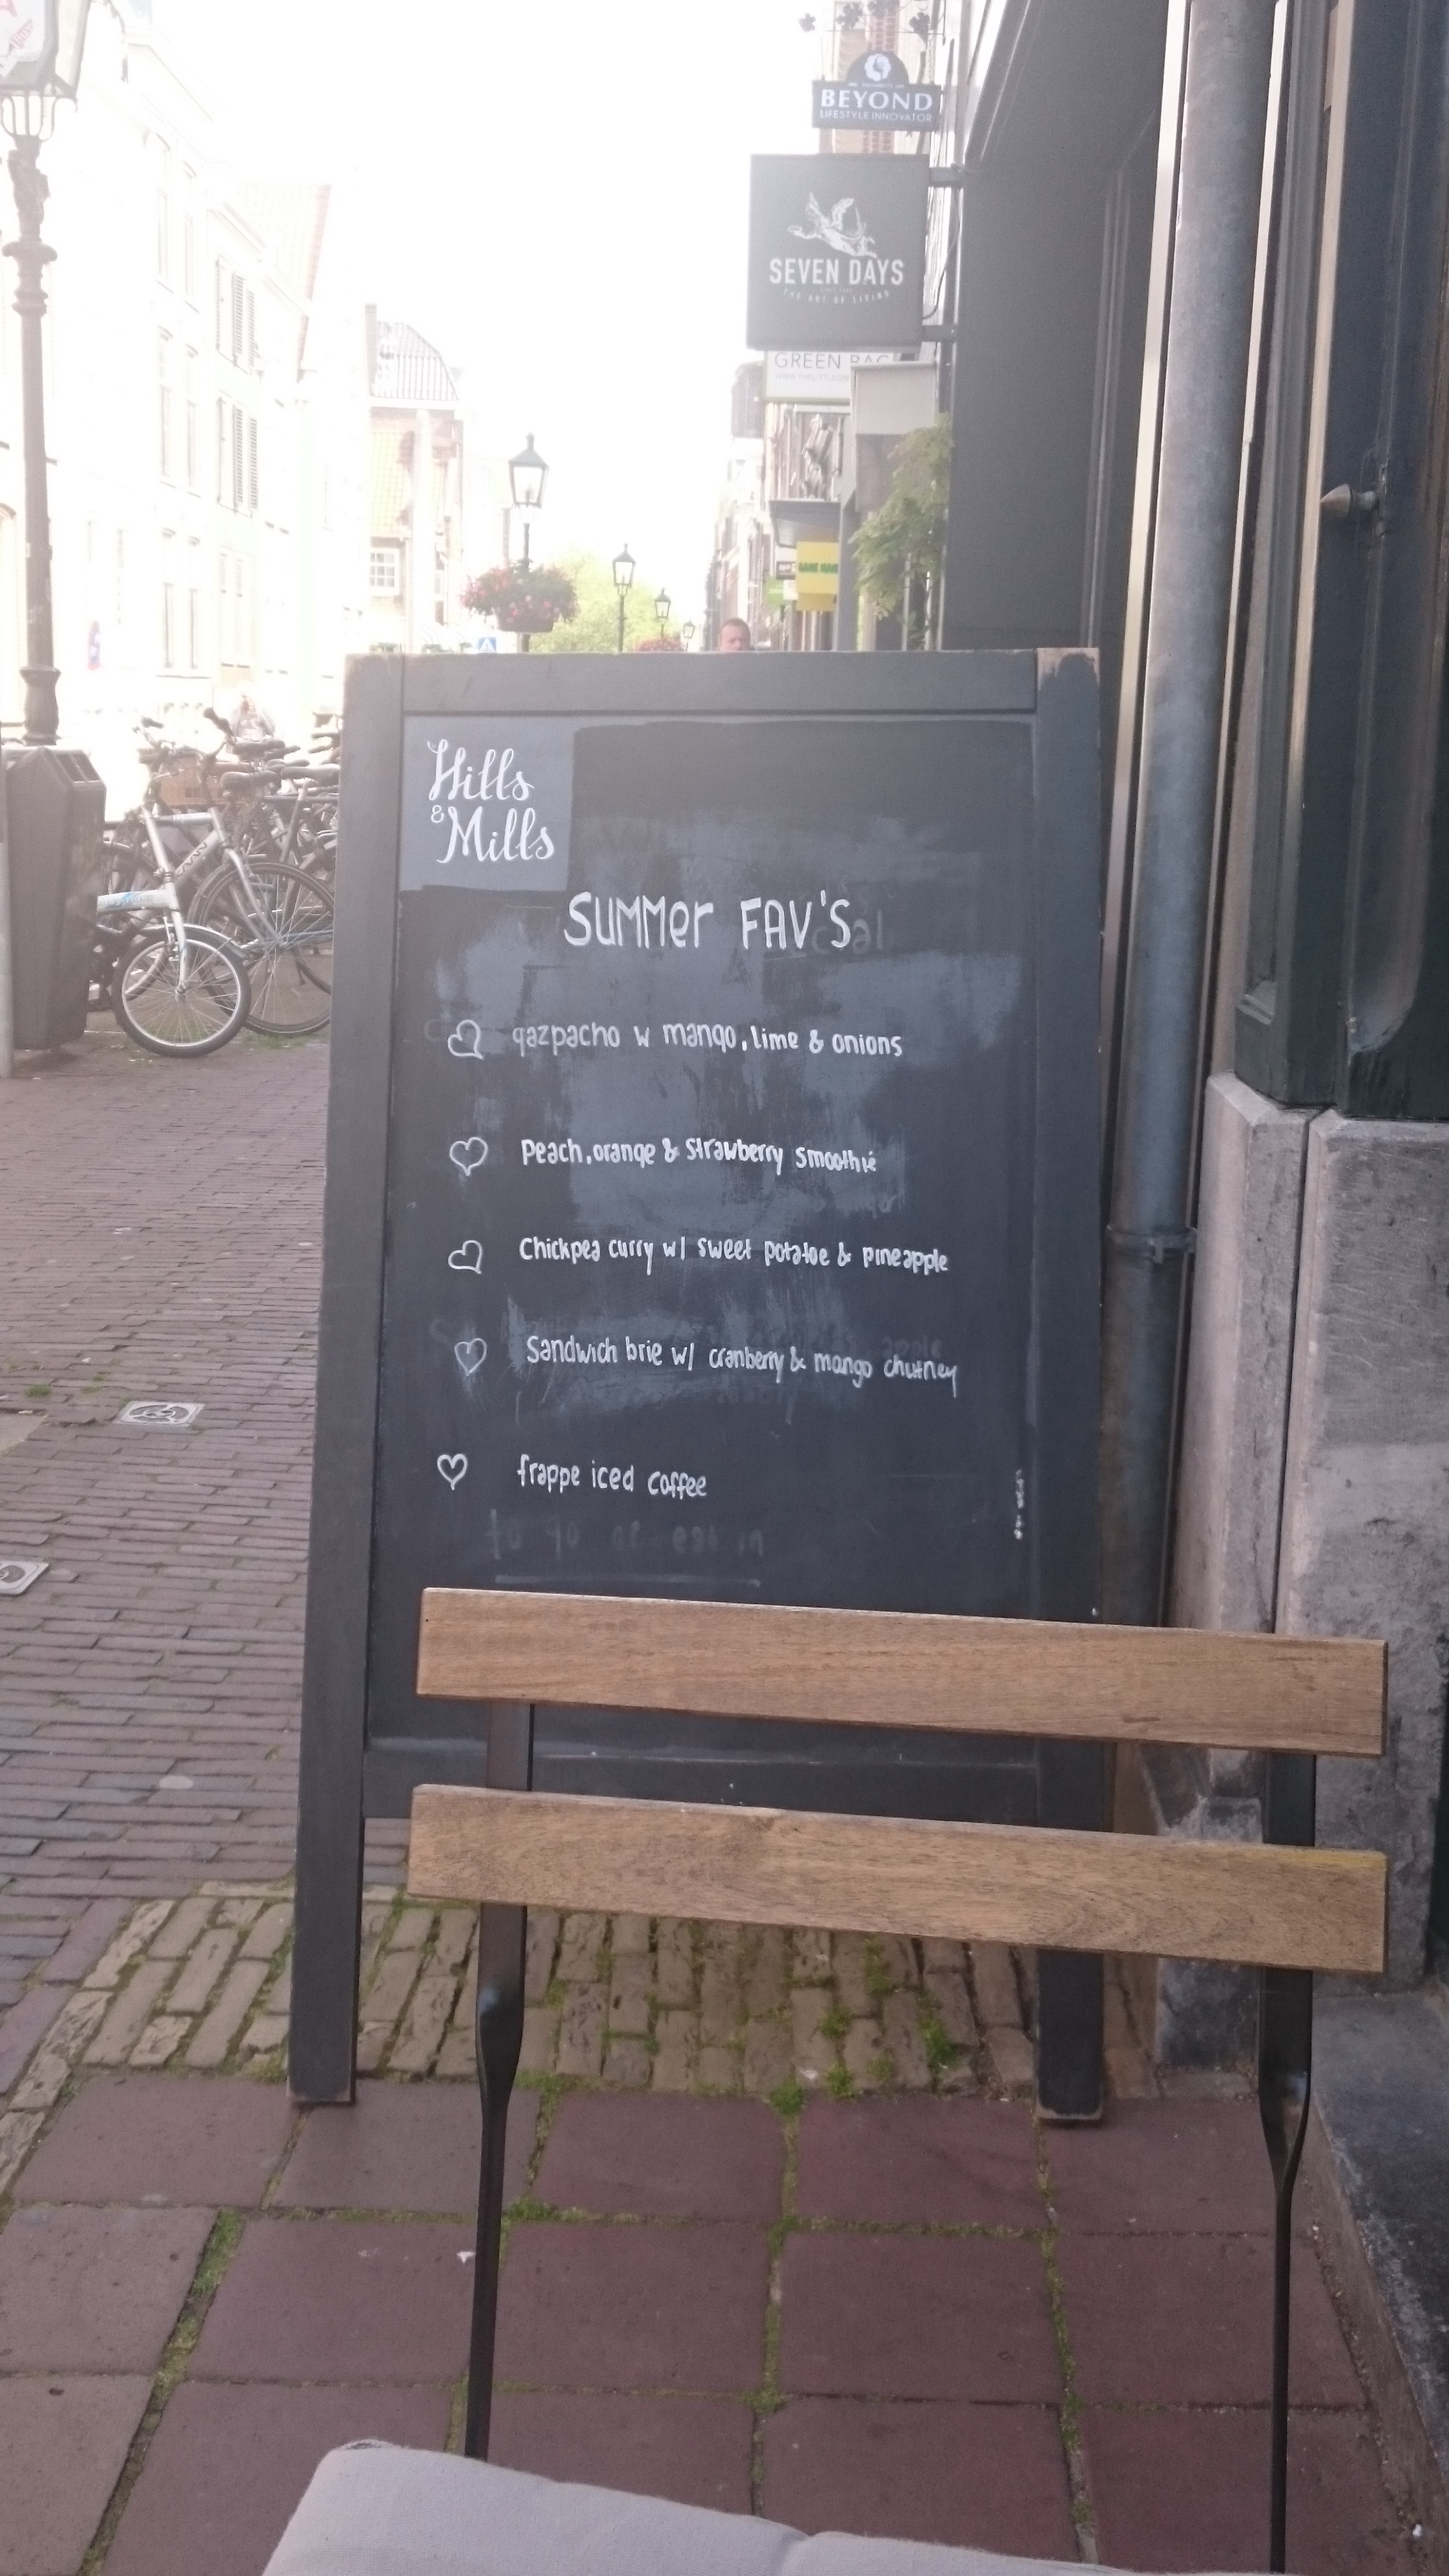 BEYOND
LIFESTYLE INNOVATOR
SEVEN DAYS
THE ART OF LIVING
GREEN BAG
Hills
&
Mills
SUMMer FAV'S
gazpacho w mango, lime & onions
Peach, orange & Strawberry smoothie
Chickpea curry w/ sweet potatoe & pineapple
Sandwich brie w/ cranberry & mango chutney
frappe iced coffee
to go or eat in